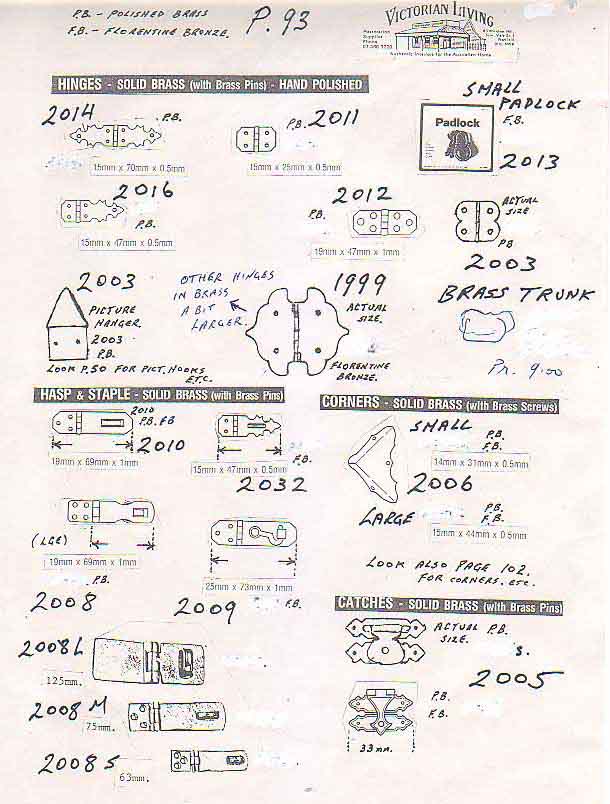 P.B. - POLISHED BRASS
F.B. - FLORENTINE BRONZE.
P. 93
VICTORIAN LIVING
Authentic Interiors for the Australian Home
HINGES - SOLID BRASS (with Brass Pins) - HAND POLISHED
2014 P.B.
15mm x 70mm x 0.5mm
P.B. 2011
15mm x 25mm x 0.5mm
SMALL
PADLOCK
F.B.
Padlock
2013
2016
P.B.
15mm x 47mm x 0.5mm
2012
P.B.
19mm x 47mm x 1mm
ACTUAL
SIZE
P.B
2003
2003
PICTURE
HANGER.
2003
P.B.
LOOK P.50 FOR PICT. HOOKS
E.T.C.
OTHER HINGES
IN BRASS
A BIT
LARGER.
1999
ACTUAL
SIZE.
FLORENTINE
BRONZE.
BRASS TRUNK
Pr. 9.00
HASP & STAPLE - SOLID BRASS (with Brass Pins)
2010
P.B. F.B
2010
19mm x 69mm x 1mm
15mm x 47mm x 0.5mm
F.B.
2032
(LGE)
19mm x 69mm x 1mm
P.B.
2008
25mm x 73mm x 1mm
2009 F.B.
2008 L
125mm.
2008 M
75mm.
2008 S
63mm.
CORNERS - SOLID BRASS (with Brass Screws)
SMALL
P.B.
F.B.
14mm x 31mm x 0.5mm
2006
LARGE
P.B.
F.B.
15mm x 44mm x 0.5mm
LOOK ALSO PAGE 102.
FOR CORNERS. ETC.
CATCHES - SOLID BRASS (with Brass Pins)
ACTUAL P.B.
SIZE.
S.
2005
P.B.
F.B.
33mm.